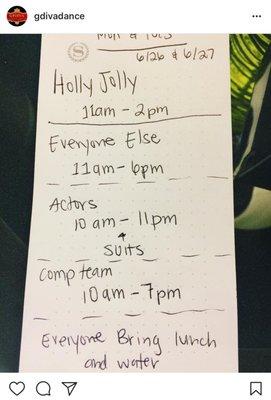 gdivadance
Mon & Tues
6/26 & 6/27
Holly Jolly
11am - 2pm
Everyone Else
11am - 6pm
Actors
10 am - 11pm
&
SUITS
Comp team
10am - 7pm
Everyone Bring lunch
and water